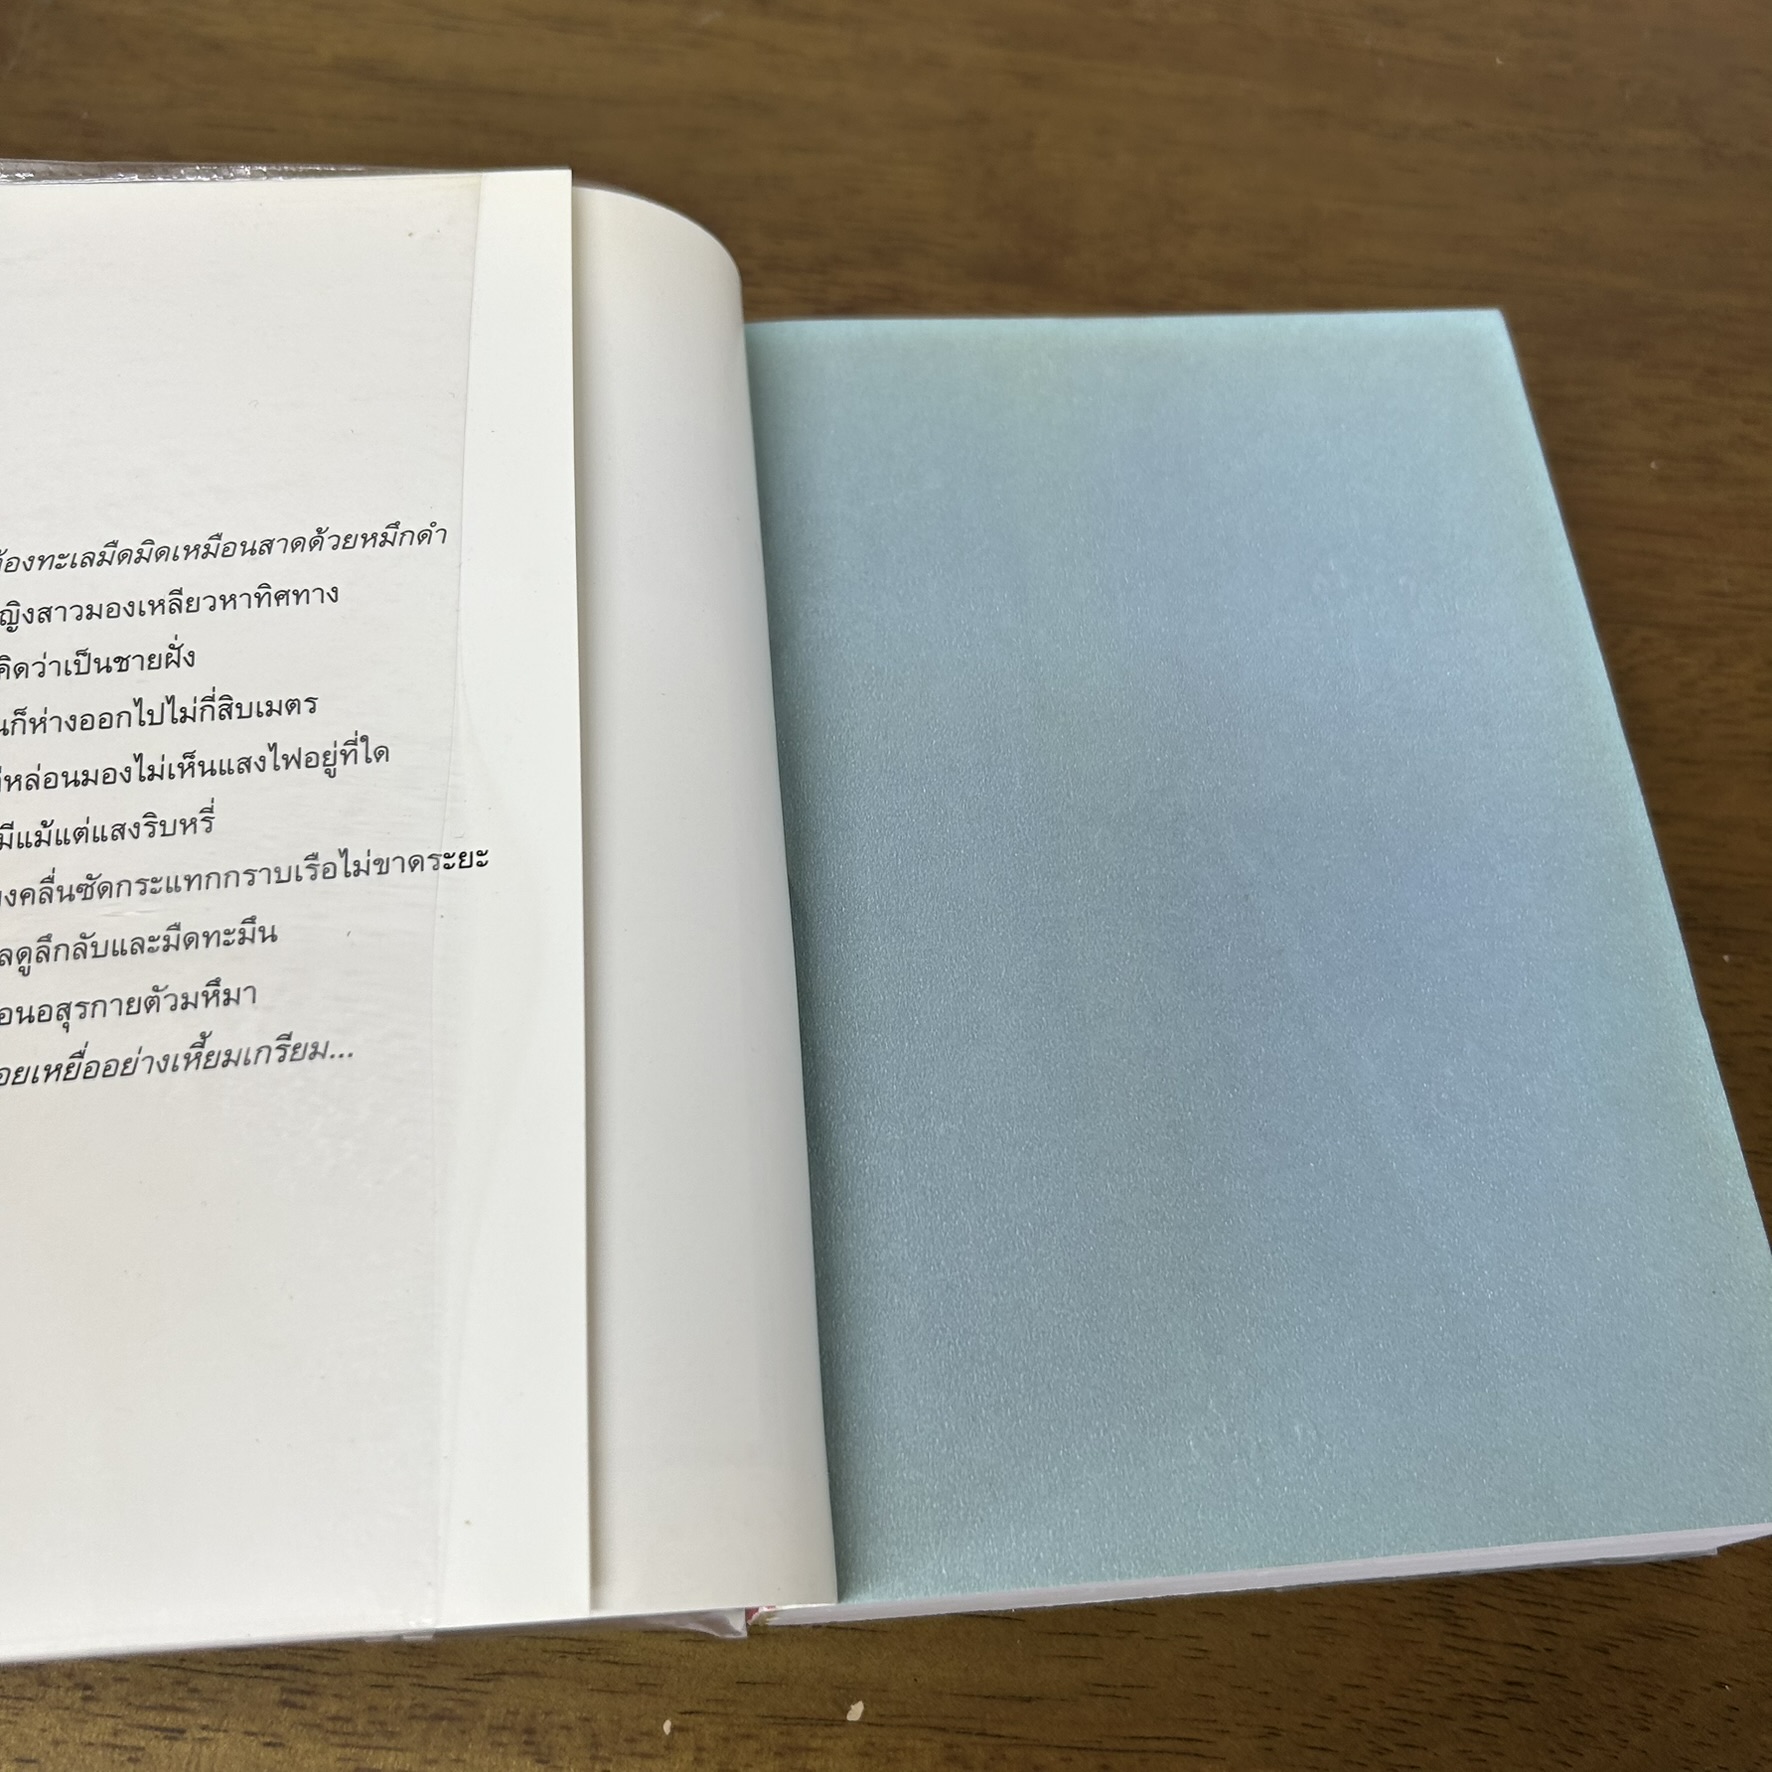 ้องทะเลมืดมิดเหมือนสาดด้วยหมึกดำ
ญิงสาวมองเหลียวหาทิศทาง
คิดว่าเป็นชายฝั่ง
นก็ห่างออกไปไม่กี่สิบเมตร
หล่อนมองไม่เห็นแสงไฟอยู่ที่ใด
มีแม้แต่แสงริบหรี่
งคลื่นซัดกระแทกกราบเรือไม่ขาดระยะ
ลดูลึกลับและมืดทะมึน
อนอสุรกายตัวมหึมา
อยเหยื่ออย่างเหี้ยมเกรียม...